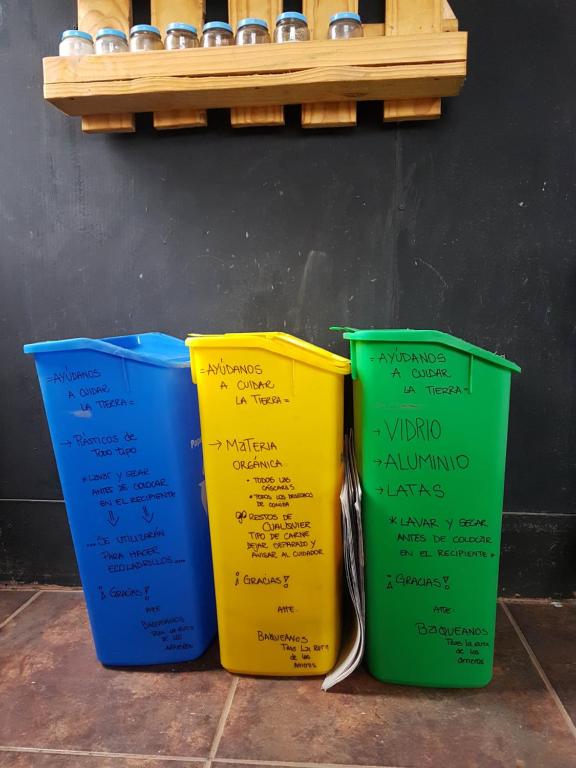 =AYÚDANOS
A CUIDAR
LA TIERRA=
→ PLÁSTICOS DE
TODO TIPO
*LAVAR Y SECAR
ANTES DE COLOCAR
EN EL RECIPIENTE
...SE UTILIZARÁN
PARA HACER
ECOLADRILLOS...
¡GRACIAS!
ATTE:
BAQUEANOS
TRAS LA RUTA
DE LOS
=AYÚDANOS
A CUIDAR
LA TIERRA=
→ MATERIA
ORGÁNICA
* TODOS LAS
CÁSCARAS
* TODOS LOS DESECHOS
DE COMIDA
RESTOS DE
CUALQUIER
TIPO DE CARNE
DEJAR SEPARADO Y
AVISAR AL CUIDADOR
¡GRACIAS!
ATTE:
BAQUEANOS
TRAS LA RUTA
DE LOS
ARRIEROS
=AYÚDANOS
A CUIDAR
LA TIERRA=
→VIDRIO
→ALUMINIO
→LATAS
*LAVAR Y SECAR
ANTES DE COLOCAR
EN EL RECIPIENTE*
¡GRACIAS!
ATTE:
BAQUEANOS
TRAS LA RUTA
DE LOS
ARRIEROS